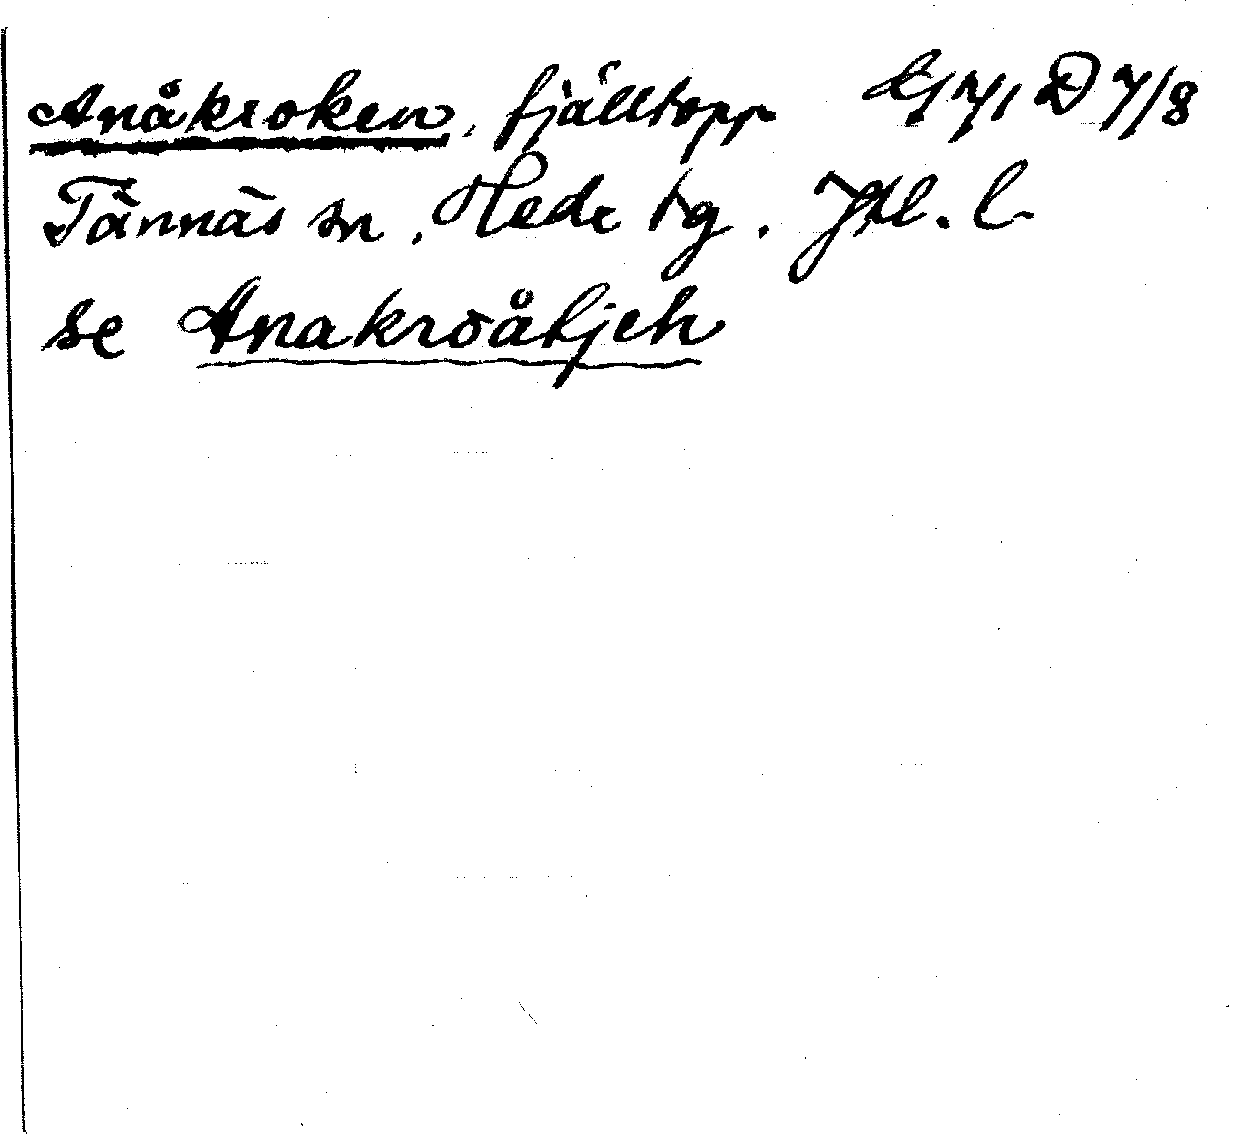 Anåkroken, fjälltopp G 71 D 7/8
Tännäs sn, Hede tg. Jtl. l.
se Anakroåbjeh